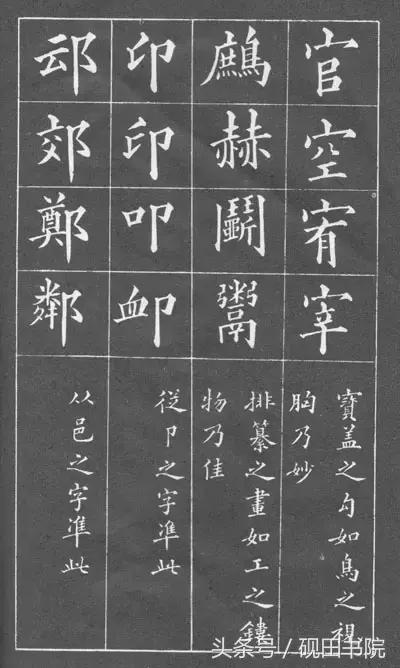 官
空
宥
宰
寶盖之勾如鳥之視
胸乃妙
鷓
赫
鬭
鬻
排纂之畫如工之鏤
物乃佳
印
印
叩
卹
從卩之字凖此
䢵
郊
鄭
鄰
从邑之字凖此
头条号/砚田书院